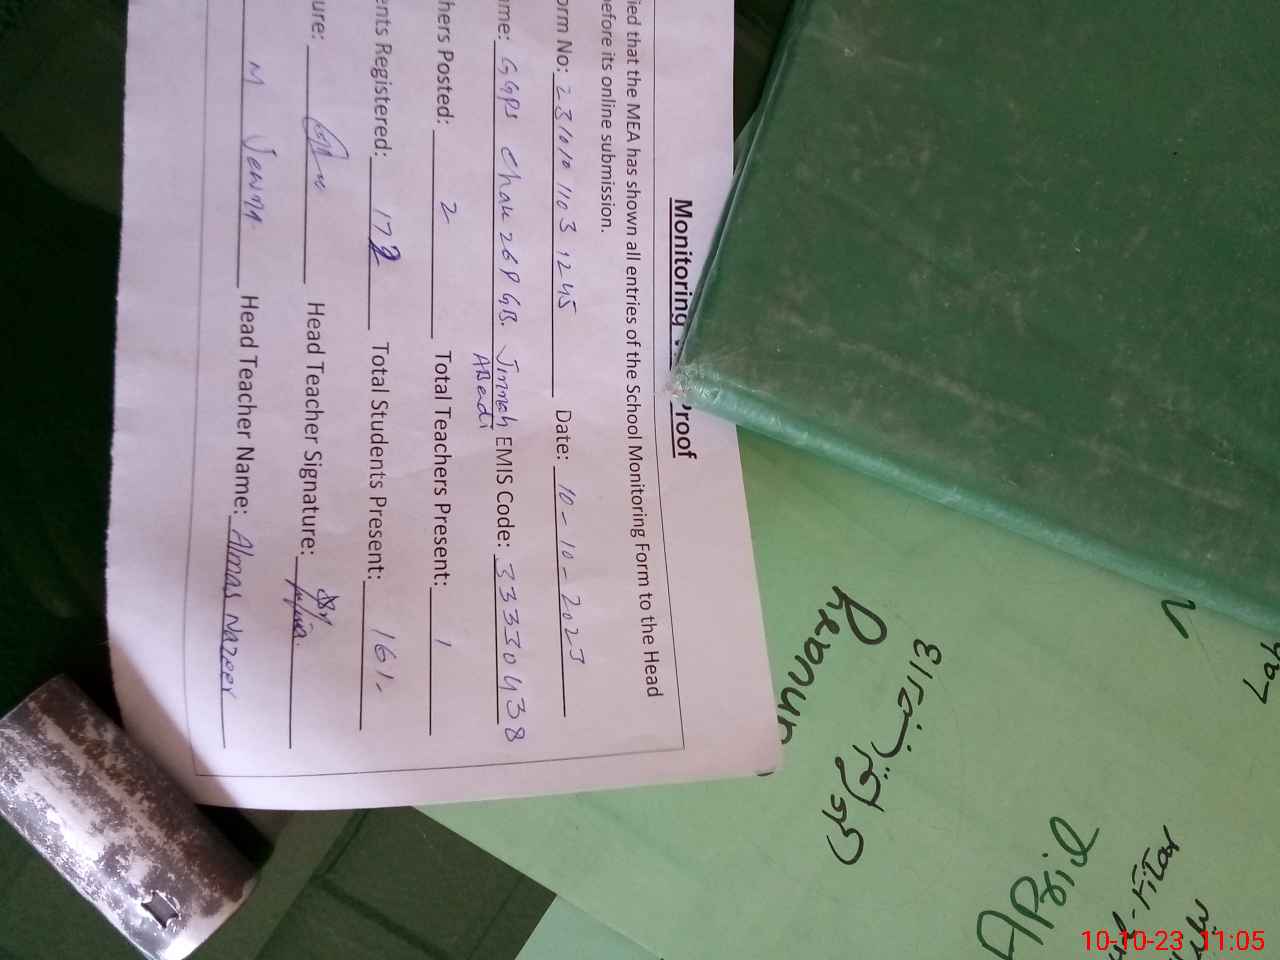 Monitoring Proof
ied that the MEA has shown all entries of the School Monitoring Form to the Head
efore its online submission.
orm No: 23101011031245 Date: 10-10-2023
me: GGPS Chak 268 GB. Jinnah ABadi EMIS Code: 33330438
hers Posted: 2 Total Teachers Present: 1
ents Registered: 172 Total Students Present: 161-
ure: Head Teacher Signature:
M Head Teacher Name: Almas Nazeer
nuary
April
10-10-23 11:05